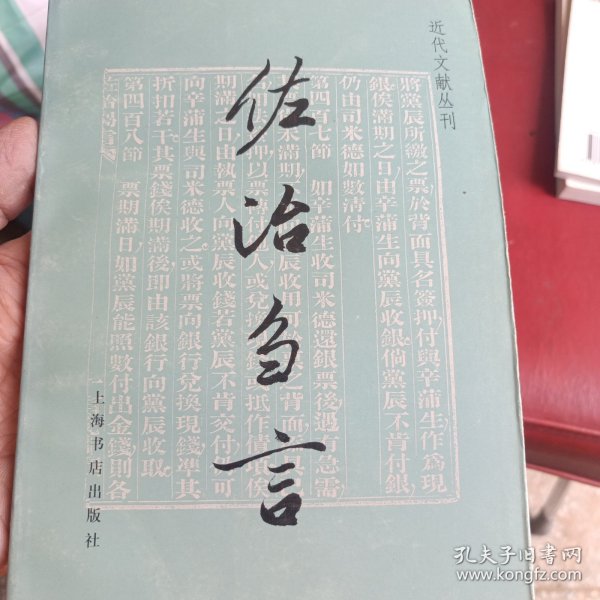 近代文献丛刊
佐治刍言
將黨辰所繳之票於背面具名簽押付與辛蒲生作爲現
銀俟滿期之日由辛蒲生向黨辰收銀倘黨辰不肯付銀
仍由司米德如數清付
第四百七節 如辛蒲生收司米德還銀票後遇有急需
未滿期 之背面具
押以票 付人或兌換 或抵作債項俟
期滿之日由執票人向黨辰收錢若黨辰不肯交付 可
向辛蒲生與司米德收之或將票向銀行兌換現錢準其
折扣若干其票錢俟期滿後即由該銀行向黨辰收取
第四百八節 票期滿日如黨辰能照數付出金錢則各
佐治芻言
上海书店出版社
孔夫子旧书网
www.kongfz.com